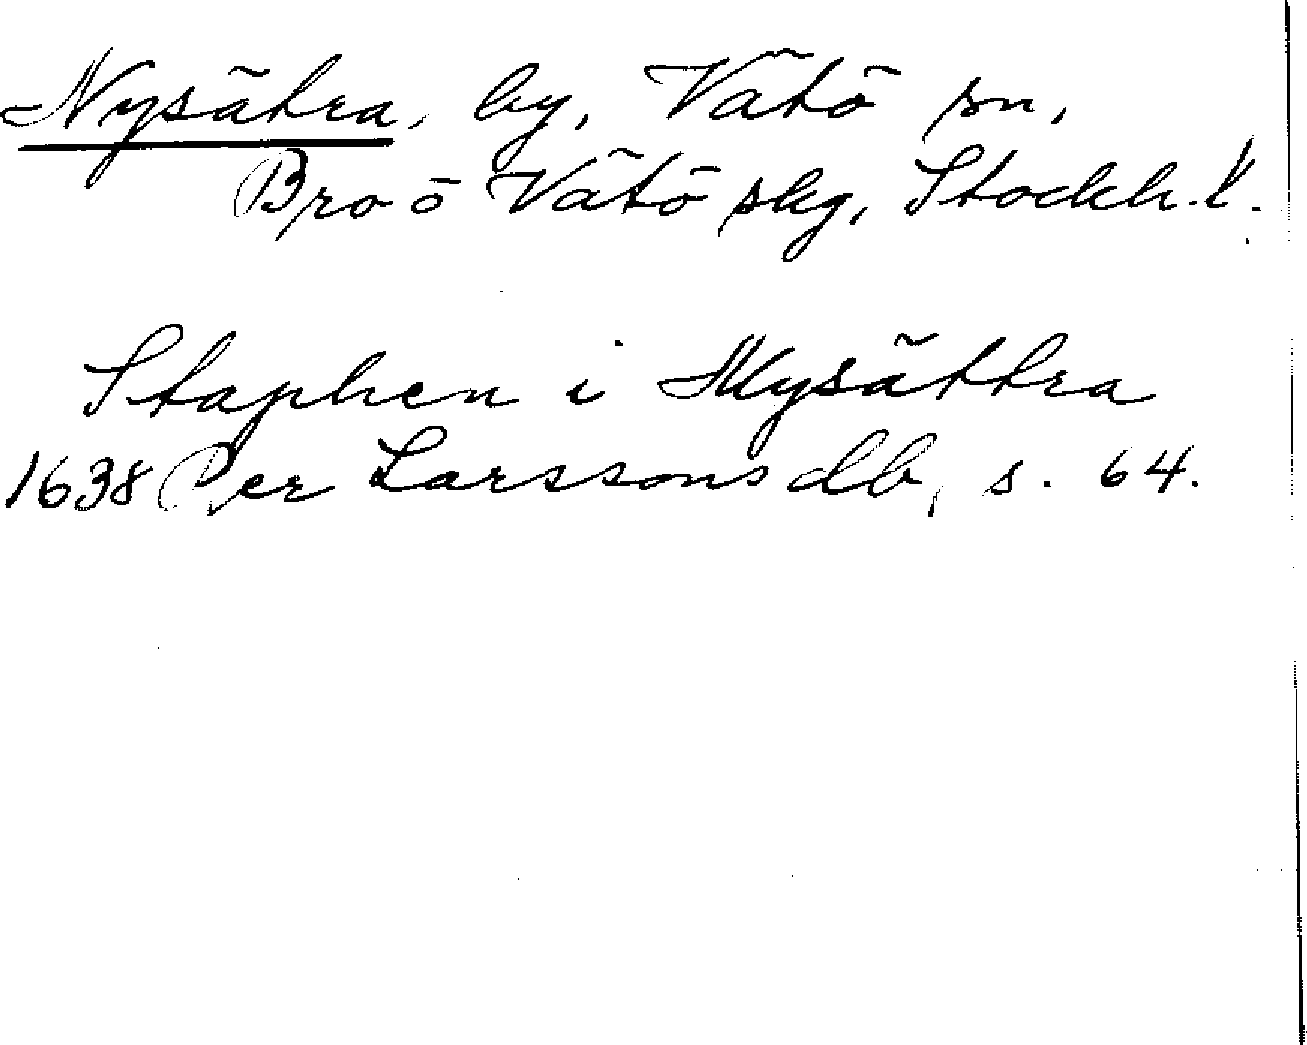 Nysätra, by, Vätö sn,
Bro o Vätö skg, Stockh. l.
Staphen i Nysättra
1638 Per Larssons db, s. 64.